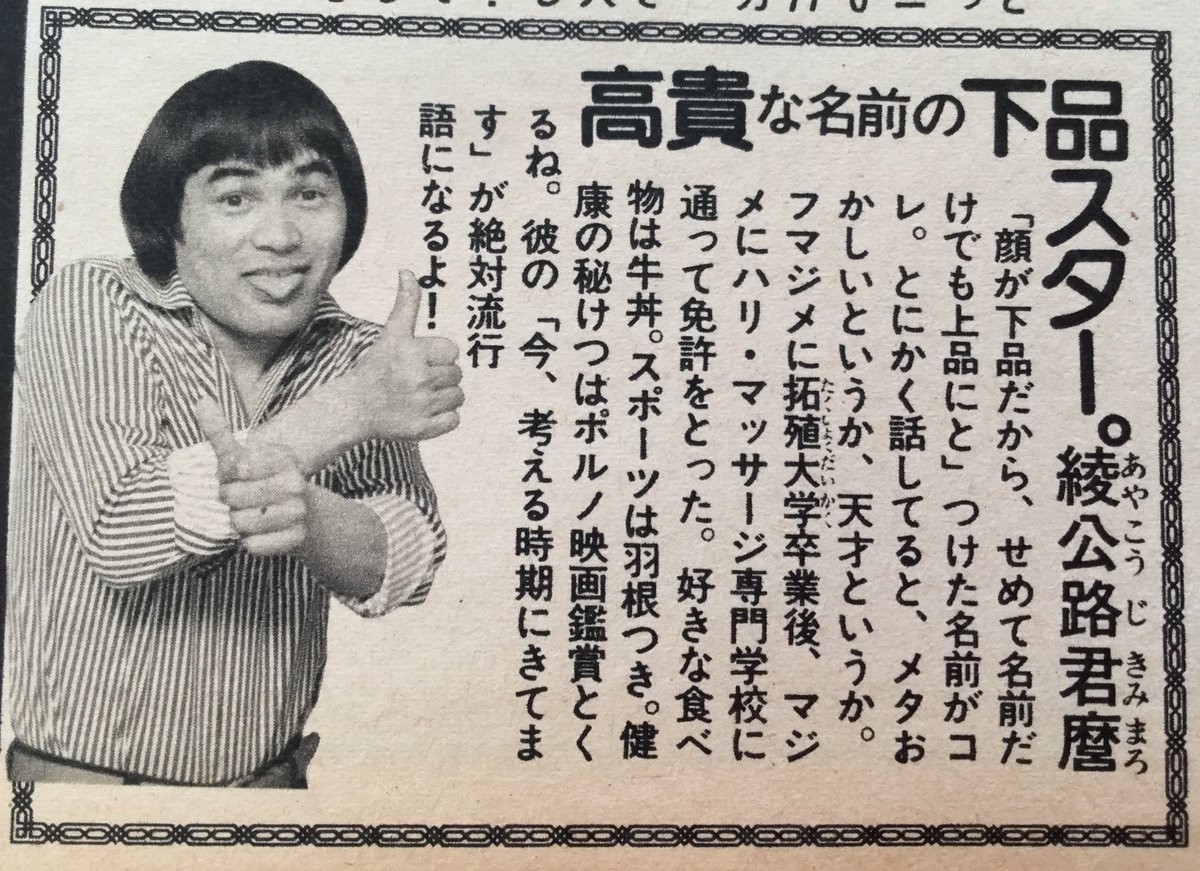 高貴な名前の下品スター。綾公路君麿
あやこうじきみまろ
「顔が下品だから、せめて名前だ
けでも上品にと」つけた名前がコ
レ。とにかく話してると、メタお
かしいというか、天才というか。
フマジメに拓殖大学卒業後、マジ
たくしょくだいがく
メにハリ・マッサージ専門学校に
通って免許をとった。好きな食べ
物は牛丼。スポーツは羽根つき。健
康の秘けつはポルノ映画鑑賞とく
るね。彼の「今、考える時期にきてま
す」が絶対流行
語になるよ!